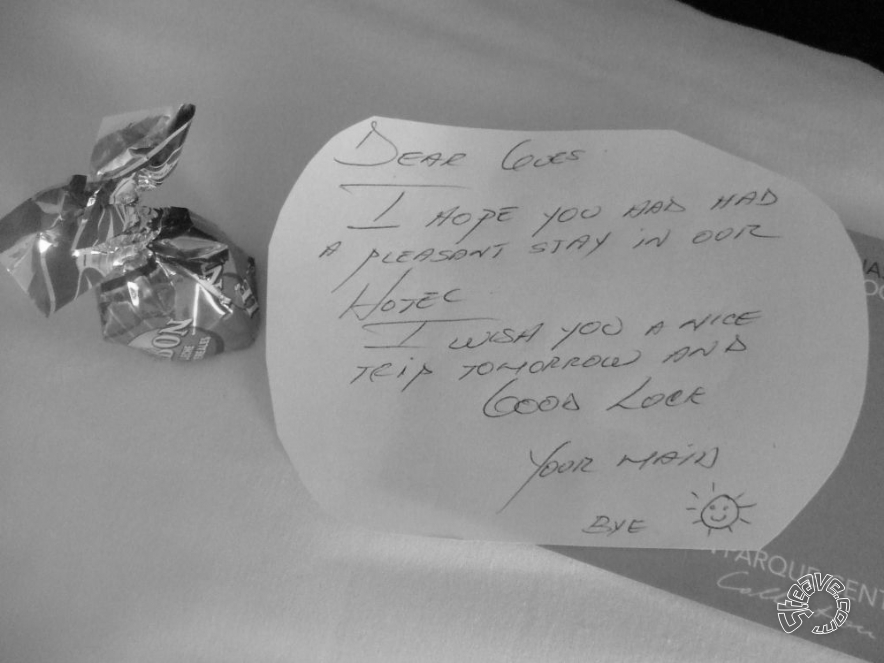 DEAR GUES
I HOPE YOU HAD HAD
A PLEASANT STAY IN OUR
HOTEL
I WISH YOU A NICE
TRIP TOMORROW AND
GOOD LOCK
YOUR MAID
BYE
PARQUE
Steave.com